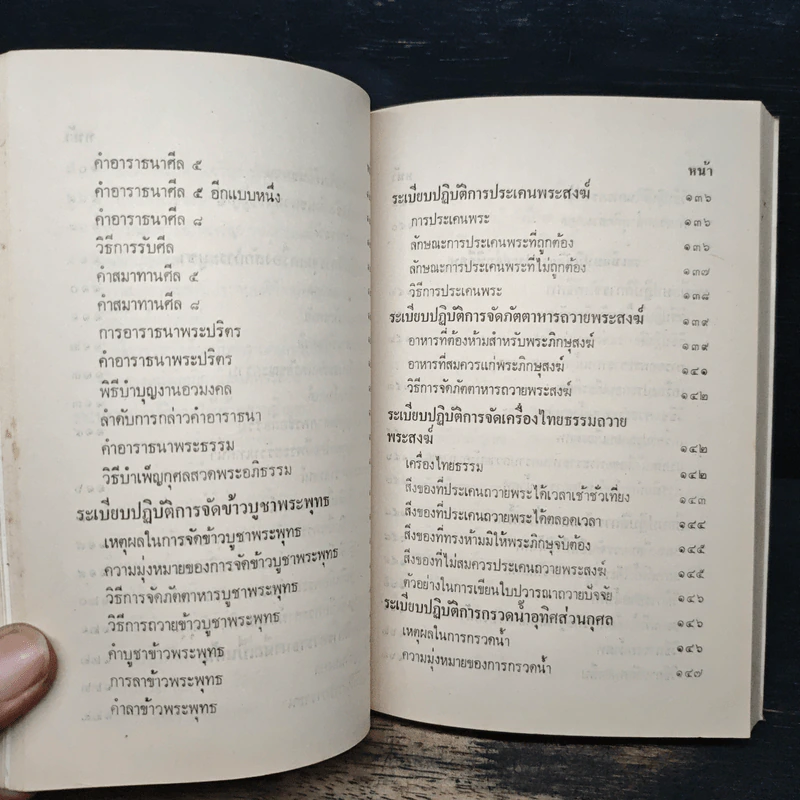 คำอาราธนาศีล ๕
คำอาราธนาศีล ๕ อีกแบบหนึ่ง
คำอาราธนาศีล ๘
วิธีการรับศีล
คำสมาทานศีล ๕
คำสมาทานศีล ๘
การอาราธนาพระปริตร
คำอาราธนาพระปริตร
พิธีบำบุญงานอวมงคล
ลำดับการกล่าวคำอาราธนา
คำอาราธนาพระธรรม
วิธีบำเพ็ญกุศลสวดพระอภิธรรม
ระเบียบปฏิบัติการจัดข้าวบูชาพระพุทธ
เหตุผลในการจัดข้าวบูชาพระพุทธ
ความมุ่งหมายของการจัดข้าวบูชาพระพุทธ
วิธีการจัดภัตตาหารบูชาพระพุทธ
วิธีการถวายข้าวบูชาพระพุทธ
คำบูชาข้าวพระพุทธ
การลาข้าวพระพุทธ
คำลาข้าวพระพุทธ
หน้า
ระเบียบปฏิบัติการประเคนพระสงฆ์ ๑๓๖
การประเคนพระ ๑๓๖
ลักษณะการประเคนพระที่ถูกต้อง ๑๓๖
ลักษณะการประเคนพระที่ไม่ถูกต้อง ๑๓๗
วิธีการประเคนพระ ๑๓๘
ระเบียบปฏิบัติการจัดภัตตาหารถวายพระสงฆ์ ๑๓๙
อาหารที่ต้องห้ามสำหรับพระภิกษุสงฆ์ ๑๓๙
อาหารที่สมควรแก่พระภิกษุสงฆ์ ๑๔๑
วิธีการจัดภัตตาหารถวายพระสงฆ์ ๑๔๒
ระเบียบปฏิบัติการจัดเครื่องไทยธรรมถวาย
พระสงฆ์ ๑๔๒
เครื่องไทยธรรม ๑๔๒
สิ่งของที่ประเคนถวายพระได้เวลาเช้าชั่วเที่ยง ๑๔๓
สิ่งของที่ประเคนถวายพระได้ตลอดเวลา ๑๔๔
สิ่งของที่ทรงห้ามมิให้พระภิกษุจับต้อง ๑๔๕
สิ่งของที่ไม่สมควรประเคนถวายพระสงฆ์ ๑๔๕
ตัวอย่างในการเขียนใบปวารณาถวายปัจจัย ๑๔๖
ระเบียบปฏิบัติการกรวดน้ำอุทิศส่วนกุศล ๑๔๖
เหตุผลในการกรวดน้ำ ๑๔๖
ความมุ่งหมายของการกรวดน้ำ ๑๔๗